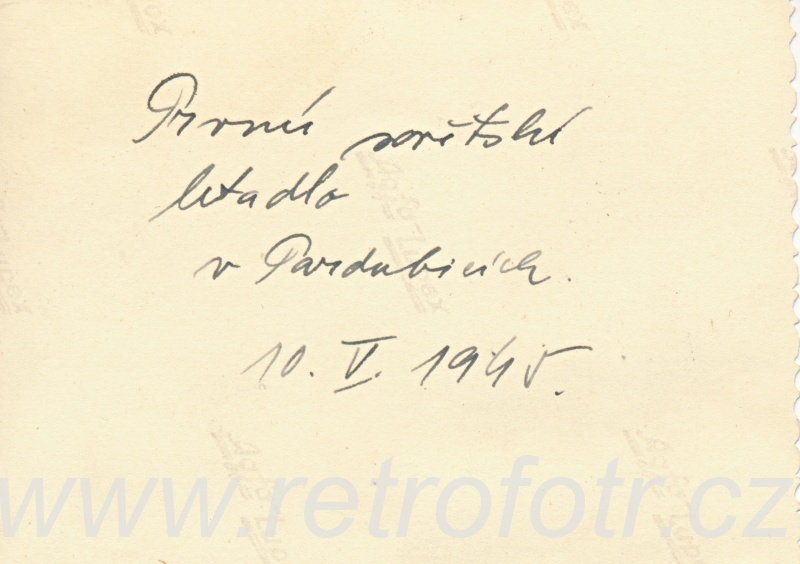 První sovětské
letadlo
v Pardubicích.
10. V. 1945.
www.retrofotr.cz